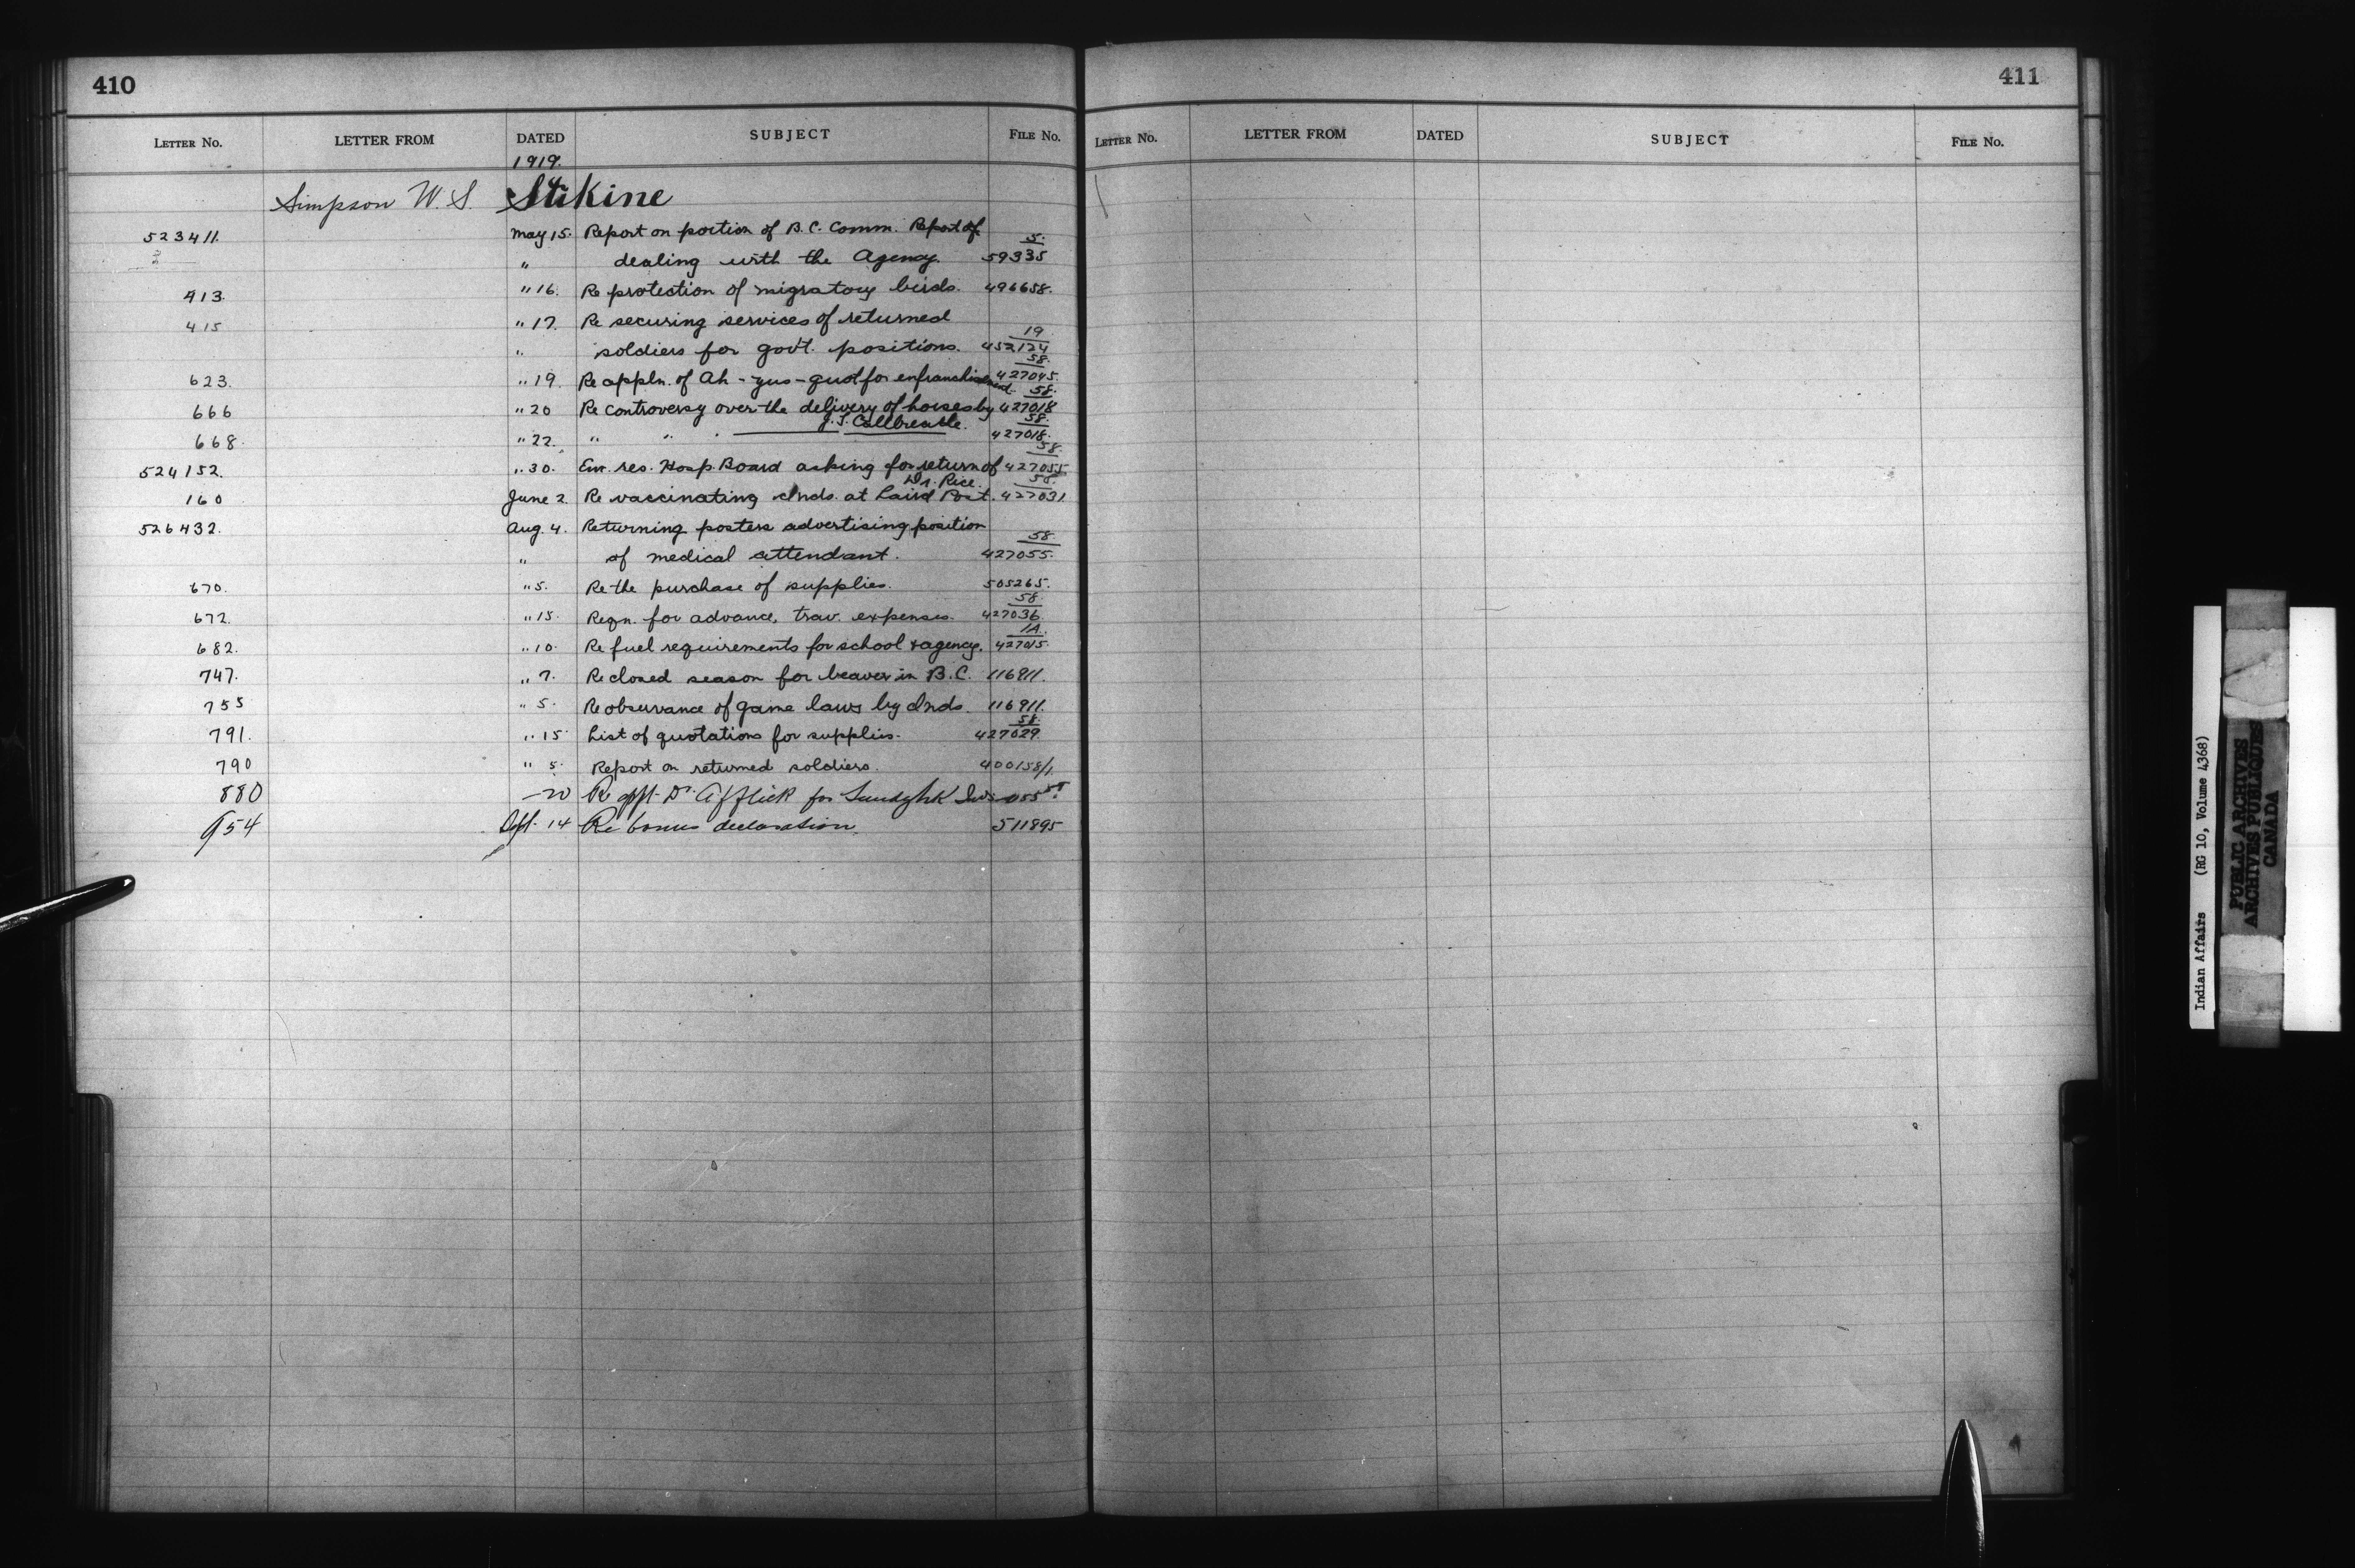 410
LETTER NO. LETTER FROM DATED SUBJECT FILE No.
1919.
Simpson W. S. Stikine
523411. May 15. Report on portion of B.C. Comm. Report of 5.
" dealing with the Agency. 59335
413. " 16. Re protection of migratory birds. 496658.
415 " 17. Re securing services of returned 19
" soldiers for govt. positions. 452124
58.
623. " 19. Re appln. of Ah-yus-quot for enfranchisement. 427045.
58.
666 " 20 Re controversy over the delivery of horses by 427018
J. T. Callbreath. 58
668. " 22. " " " 427018.
58.
524152. " 30. Enc. res. Hosp. Board asking for return of 427055
Dr. Rice. 58.
160 June 2. Re vaccinating Inds. at Laird Post. 427031
526432. Aug. 4. Returning posters advertising position 58
" of medical attendant. 427055.
670. " 5. Re the purchase of supplies. 505265.
58.
672. " 15. Reqn. for advance, trav. expenses. 427036
1A.
682. " 10. Re fuel requirements for school & agency. 427015.
747. " 7. Re closed season for beaver in B.C. 116911.
755 " 5. Re observance of game laws by Inds. 116911.
58.
791. " 15 List of quotations for supplies. 427029.
790 " 5. Report on returned soldiers. 400158/1
880 —20 Re appt. Dr. Afflick for 055 58.
954 Sept. 14 Re bonus declaration. 511895
411
LETTER NO. LETTER FROM DATED SUBJECT FILE No.
Indian Affairs (RG 10, Volume 4368)
PUBLIC ARCHIVES
ARCHIVES PUBLIQUES
CANADA